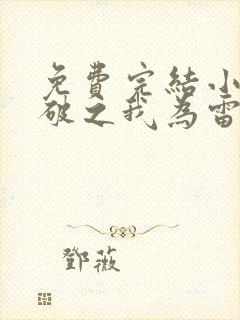 免費完結小
破之我為雷
鄧薇